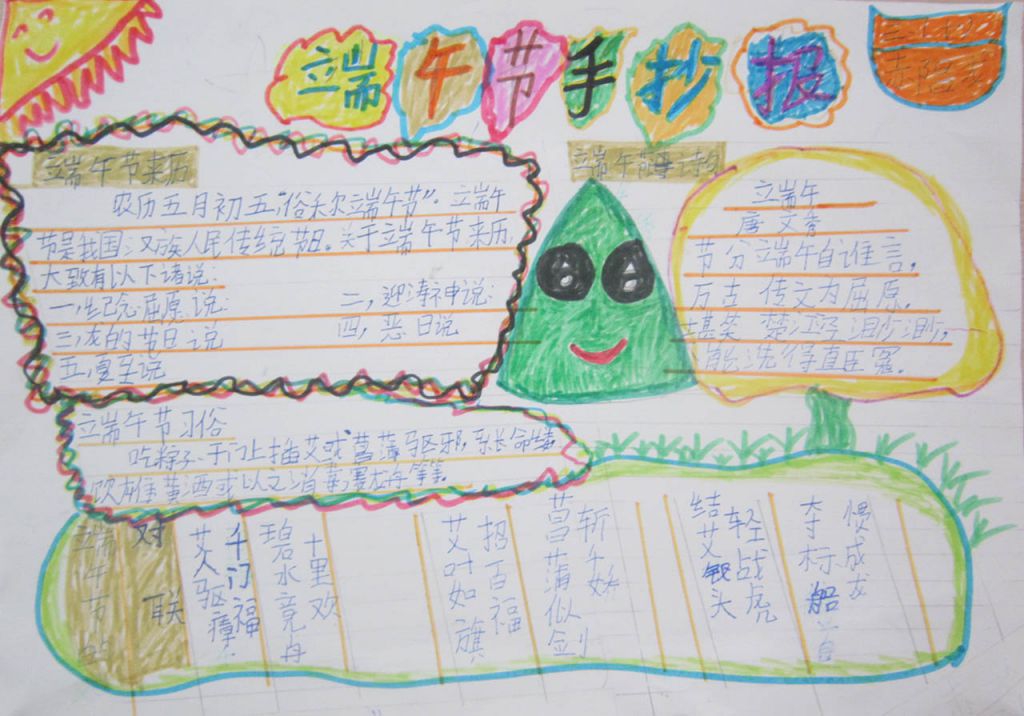 端午节手抄报
三(12)
端午节来历
农历五月初五,俗称"端午节"。端午
节是我国汉族人民传统节日。关于端午节来历,
大致有以下诸说:
一,纪念屈原说: 二,迎涛神申说:
三,龙的节日说 四,恶日说
五,夏至说
端午节诗句
端午
唐 文秀
节分端午自谁言,
万古传文为屈原,
堪笑楚江空渺渺,
能洗得直臣冤。
端午节习俗
吃粽子,于门上插艾或菖蒲驱邪,系长命缕
饮雄黄酒或以之消毒,
端午节
对联
艾人驱瘴
千门福
碧水竞舟
十里欢
艾叶如旗
招百福
菖蒲似剑
斩千妖
结艾
头
轻战虎
夺标船
惯成龙